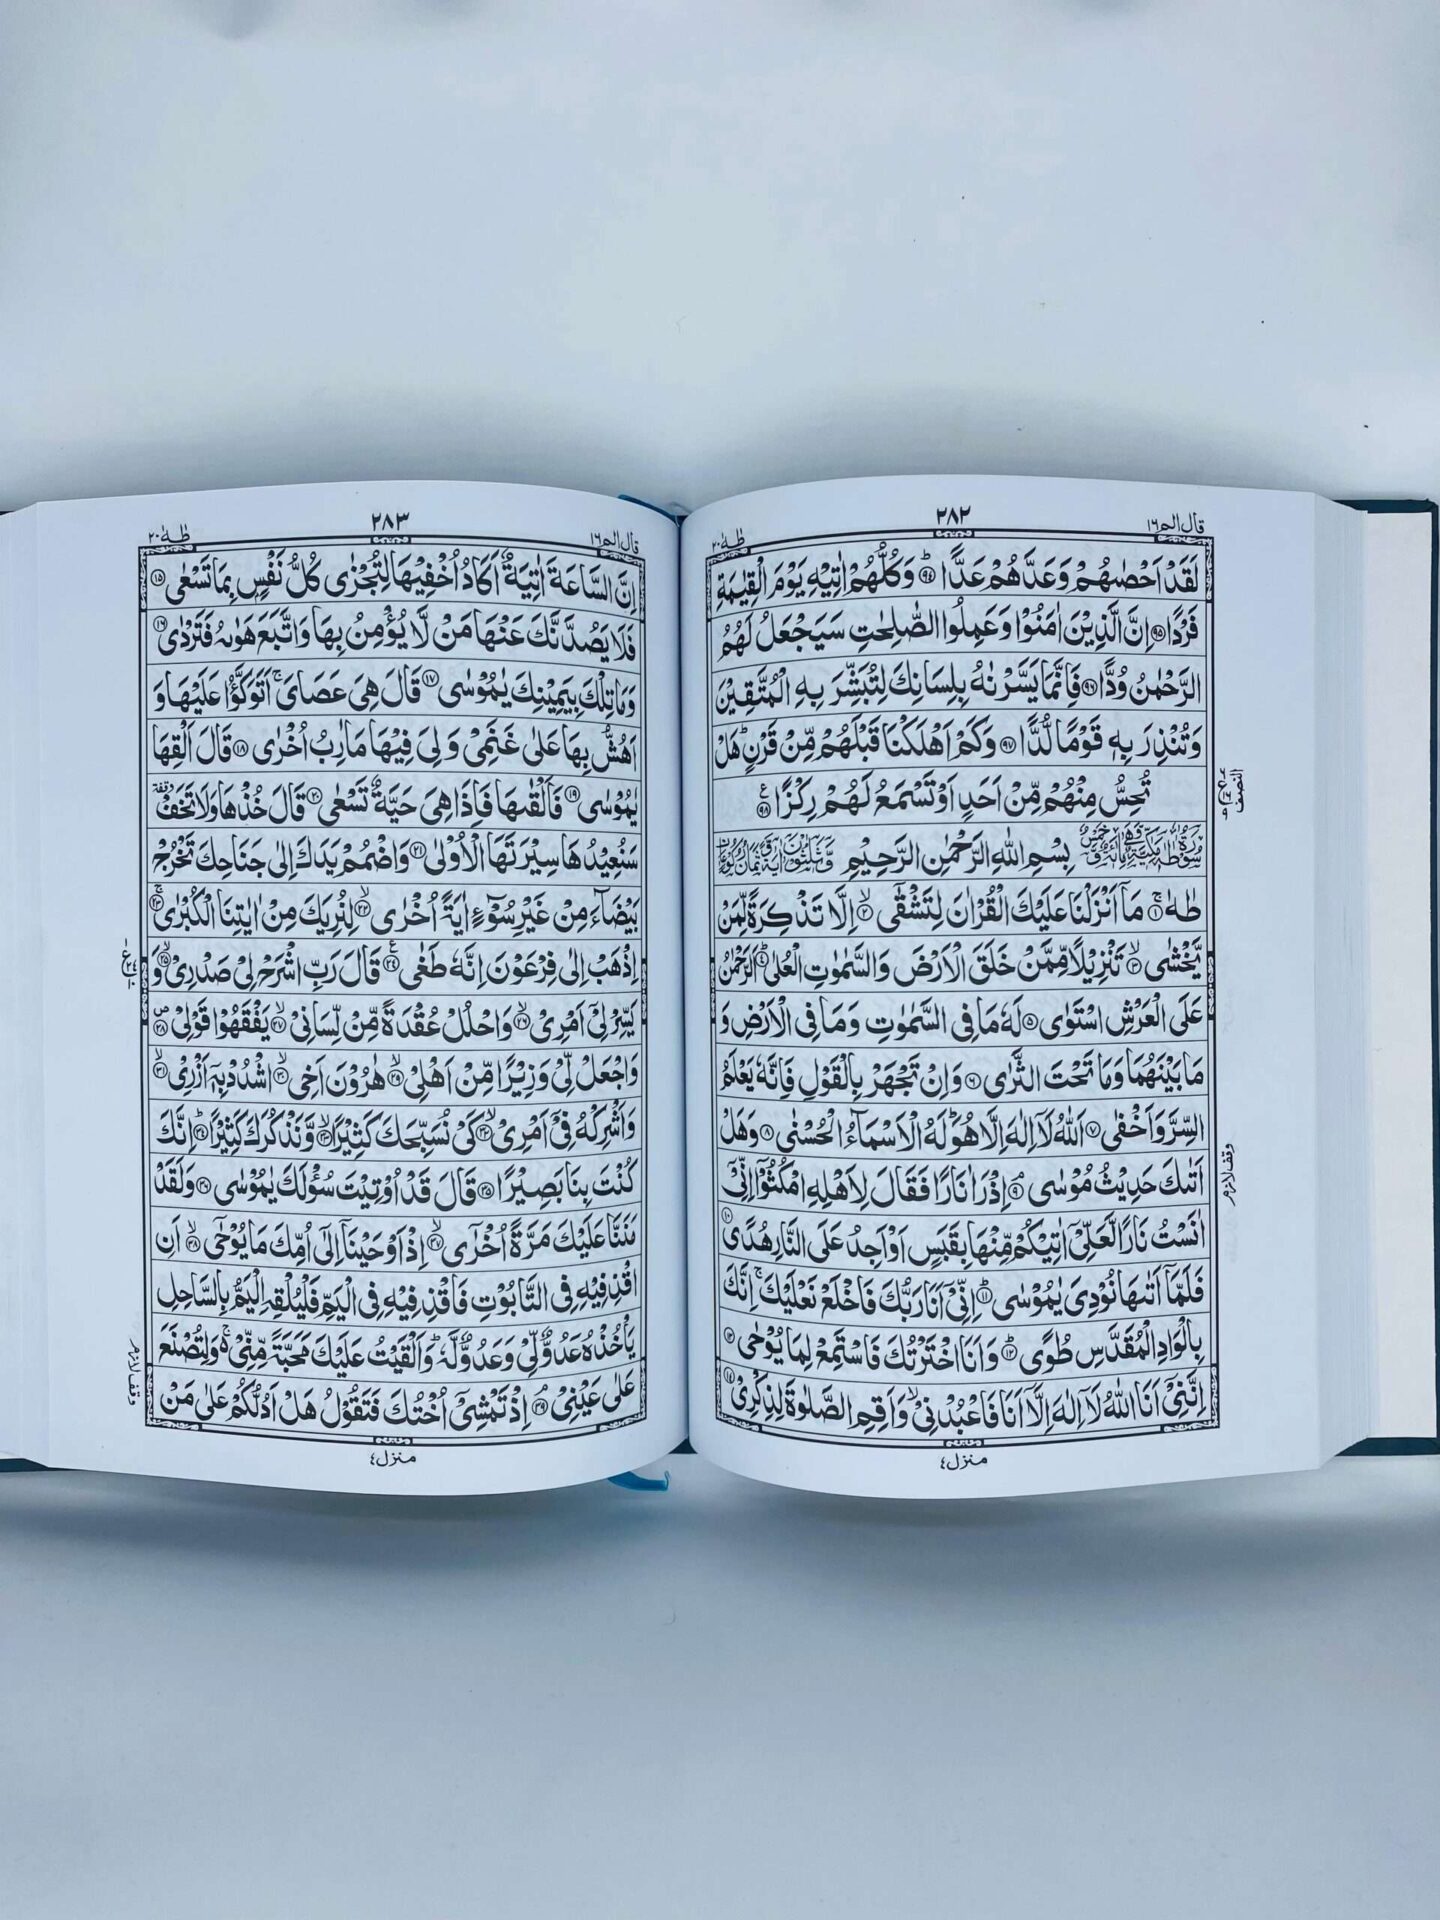 قال الم ١٦
٢٨٢
طٰهٰ ٢٠
لَقَدْ اَحْصٰىهُمْ وَعَدَّهُمْ عَدًّا ؕ‏﴿۹۴﴾ وَكُلُّهُمْ اٰتِيْهِ يَوْمَ الْقِيٰمَةِ
فَرْدًا ﴿۹۵﴾ اِنَّ الَّذِيْنَ اٰمَنُوْا وَعَمِلُوا الصّٰلِحٰتِ سَيَجْعَلُ لَهُمُ
الرَّحْمٰنُ وُدًّا ﴿۹۶﴾ فَاِنَّمَا يَسَّرْنٰهُ بِلِسَانِكَ لِتُبَشِّرَ بِهِ الْمُتَّقِيْنَ
وَتُنْذِرَ بِهٖ قَوْمًا لُّدًّا ﴿۹۷﴾ وَكَمْ اَهْلَكْنَا قَبْلَهُمْ مِّنْ قَرْنٍ ؕ هَلْ
تُحِسُّ مِنْهُمْ مِّنْ اَحَدٍ اَوْ تَسْمَعُ لَهُمْ رِكْزًا ﴿۹۸﴾
النصف
بِسْمِ اللّٰهِ الرَّحْمٰنِ الرَّحِيْمِ
طٰهٰ ۚ﴿۱﴾ مَاۤ اَنْزَلْنَا عَلَيْكَ الْقُرْاٰنَ لِتَشْقٰٓى ۙ﴿۲﴾ اِلَّا تَذْكِرَةً لِّمَنْ
يَّخْشٰى ۙ﴿۳﴾ تَنْزِيْلًا مِّمَّنْ خَلَقَ الْاَرْضَ وَالسَّمٰوٰتِ الْعُلٰى ؕ﴿۴﴾ اَلرَّحْمٰنُ
عَلَى الْعَرْشِ اسْتَوٰى ﴿۵﴾ لَهٗ مَا فِى السَّمٰوٰتِ وَمَا فِى الْاَرْضِ وَ
مَا بَيْنَهُمَا وَمَا تَحْتَ الثَّرٰى ﴿۶﴾ وَاِنْ تَجْهَرْ بِالْقَوْلِ فَاِنَّهٗ يَعْلَمُ
السِّرَّ وَاَخْفٰى ﴿۷﴾ اَللّٰهُ لَاۤ اِلٰهَ اِلَّا هُوَ ؕ لَهُ الْاَسْمَآءُ الْحُسْنٰى ﴿۸﴾ وَهَلْ
اَتٰىكَ حَدِيْثُ مُوْسٰى ۘ﴿۹﴾ اِذْ رَاٰ نَارًا فَقَالَ لِاَهْلِهِ امْكُثُوْۤا اِنِّىْۤ
وقف لازم
اٰنَسْتُ نَارًا لَّعَلِّىْۤ اٰتِيْكُمْ مِّنْهَا بِقَبَسٍ اَوْ اَجِدُ عَلَى النَّارِ هُدًى ﴿۱۰﴾
فَلَمَّاۤ اَتٰىهَا نُوْدِىَ يٰمُوْسٰى ؕ﴿۱۱﴾ اِنِّىْۤ اَنَا رَبُّكَ فَاخْلَعْ نَعْلَيْكَ ۚ اِنَّكَ
بِالْوَادِ الْمُقَدَّسِ طُوًى ؕ﴿۱۲﴾ وَاَنَا اخْتَرْتُكَ فَاسْتَمِعْ لِمَا يُوْحٰى ﴿۱۳﴾
اِنَّنِىْۤ اَنَا اللّٰهُ لَاۤ اِلٰهَ اِلَّاۤ اَنَا فَاعْبُدْنِىْ ۙ وَاَقِمِ الصَّلٰوةَ لِذِكْرِىْ ﴿۱۴﴾
منزل ٤
قال الم ١٦
٢٨٣
طٰهٰ ٢٠
اِنَّ السَّاعَةَ اٰتِيَةٌ اَكَادُ اُخْفِيْهَا لِتُجْزٰى كُلُّ نَفْسٍۭ بِمَا تَسْعٰى ﴿۱۵﴾
فَلَا يَصُدَّنَّكَ عَنْهَا مَنْ لَّا يُؤْمِنُ بِهَا وَاتَّبَعَ هَوٰىهُ فَتَرْدٰى ﴿۱۶﴾
وَمَا تِلْكَ بِيَمِيْنِكَ يٰمُوْسٰى ﴿۱۷﴾ قَالَ هِىَ عَصَاىَ ۚ اَتَوَكَّؤُا عَلَيْهَا وَ
اَهُشُّ بِهَا عَلٰى غَنَمِىْ وَلِىَ فِيْهَا مَاٰرِبُ اُخْرٰى ﴿۱۸﴾ قَالَ اَلْقِهَا
يٰمُوْسٰى ﴿۱۹﴾ فَاَلْقٰىهَا فَاِذَا هِىَ حَيَّةٌ تَسْعٰى ﴿۲۰﴾ قَالَ خُذْهَا وَلَا تَخَفْ وقفة
سَنُعِيْدُهَا سِيْرَتَهَا الْاُوْلٰى ﴿۲۱﴾ وَاضْمُمْ يَدَكَ اِلٰى جَنَاحِكَ تَخْرُجْ
بَيْضَآءَ مِنْ غَيْرِ سُوْٓءٍ اٰيَةً اُخْرٰى ۙ﴿۲۲﴾ لِنُرِيَكَ مِنْ اٰيٰتِنَا الْكُبْرٰى ۚ﴿۲۳﴾
اِذْهَبْ اِلٰى فِرْعَوْنَ اِنَّهٗ طَغٰى ﴿۲۴﴾ قَالَ رَبِّ اشْرَحْ لِىْ صَدْرِىْ ۙ﴿۲۵﴾ وَ
يَسِّرْ لِىْۤ اَمْرِىْ ۙ﴿۲۶﴾ وَاحْلُلْ عُقْدَةً مِّنْ لِّسَانِىْ ۙ﴿۲۷﴾ يَفْقَهُوْا قَوْلِىْ ۪﴿۲۸﴾
وَاجْعَلْ لِّىْ وَزِيْرًا مِّنْ اَهْلِىْ ۙ﴿۲۹﴾ هٰرُوْنَ اَخِى ۙ﴿۳۰﴾ اشْدُدْ بِهٖۤ اَزْرِىْ ۙ﴿۳۱﴾
وَاَشْرِكْهُ فِىْۤ اَمْرِىْ ۙ﴿۳۲﴾ كَىْ نُسَبِّحَكَ كَثِيْرًا ۙ﴿۳۳﴾ وَّنَذْكُرَكَ كَثِيْرًا ؕ﴿۳۴﴾ اِنَّكَ
كُنْتَ بِنَا بَصِيْرًا ﴿۳۵﴾ قَالَ قَدْ اُوْتِيْتَ سُؤْلَكَ يٰمُوْسٰى ﴿۳۶﴾ وَلَقَدْ
مَنَنَّا عَلَيْكَ مَرَّةً اُخْرٰٓى ۙ﴿۳۷﴾ اِذْ اَوْحَيْنَاۤ اِلٰٓى اُمِّكَ مَا يُوْحٰٓى ۙ﴿۳۸﴾ اَنِ
اقْذِفِيْهِ فِى التَّابُوْتِ فَاقْذِفِيْهِ فِى الْيَمِّ فَلْيُلْقِهِ الْيَمُّ بِالسَّاحِلِ
يَاْخُذْهُ عَدُوٌّ لِّىْ وَعَدُوٌّ لَّهٗ ؕ وَاَلْقَيْتُ عَلَيْكَ مَحَبَّةً مِّنِّىْ ۚ۬ وَلِتُصْنَعَ
عَلٰى عَيْنِىْ ۘ﴿۳۹﴾ اِذْ تَمْشِىْۤ اُخْتُكَ فَتَقُوْلُ هَلْ اَدُلُّكُمْ عَلٰى مَنْ
وقف لازم
منزل ٤